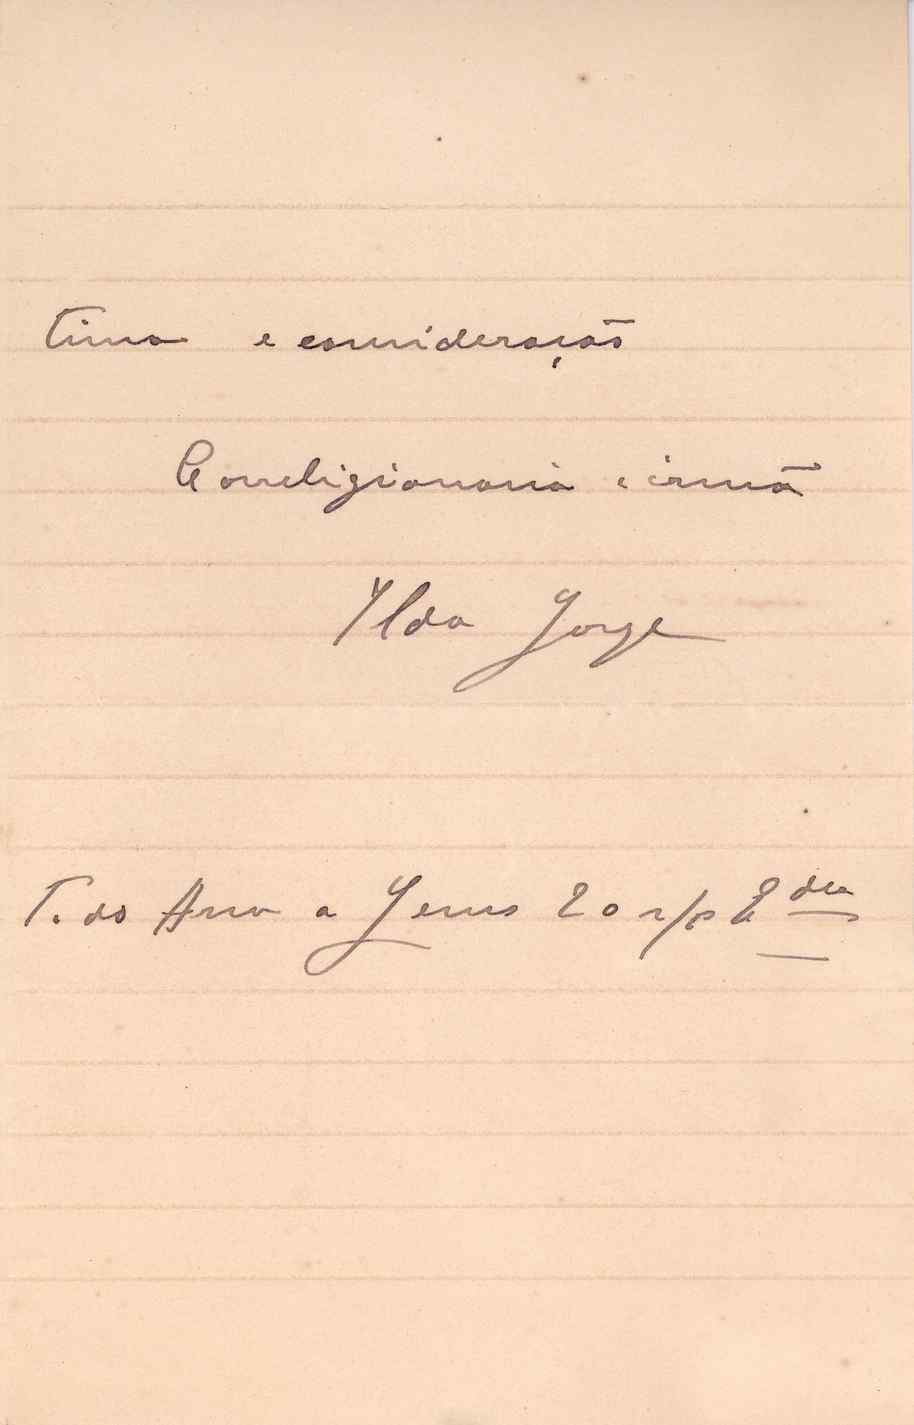 tima e consideração
Correligionaria e irmã
Ilda Jorge
T. do Arco a Jesus 20 r/c Edº